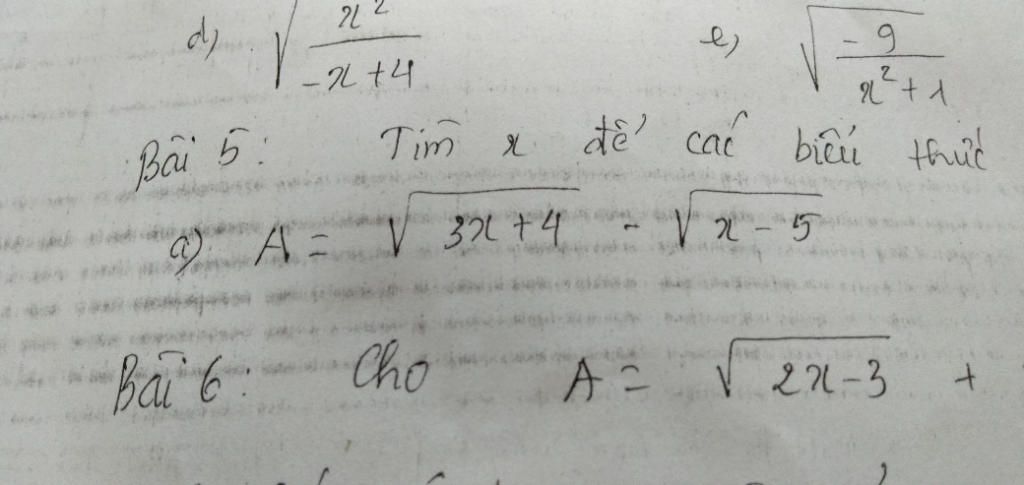 d) √(x²/(-x+4)) e) √(-9/(x²+1))
Bài 5: Tìm x để các biểu thức
a). A = √(3x+4) - √(x-5)
Bài 6: Cho A = √(2x-3) +